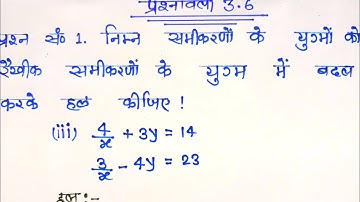 प्रश्नावली 3.6
प्रश्न सं० 1. निम्न समीकरणों के युग्मों को
रैखीक समीकरणों के युग्म में बदल
करके हल कीजिए !
(iii) 4/x + 3y = 14
3/x - 4y = 23
हल :-